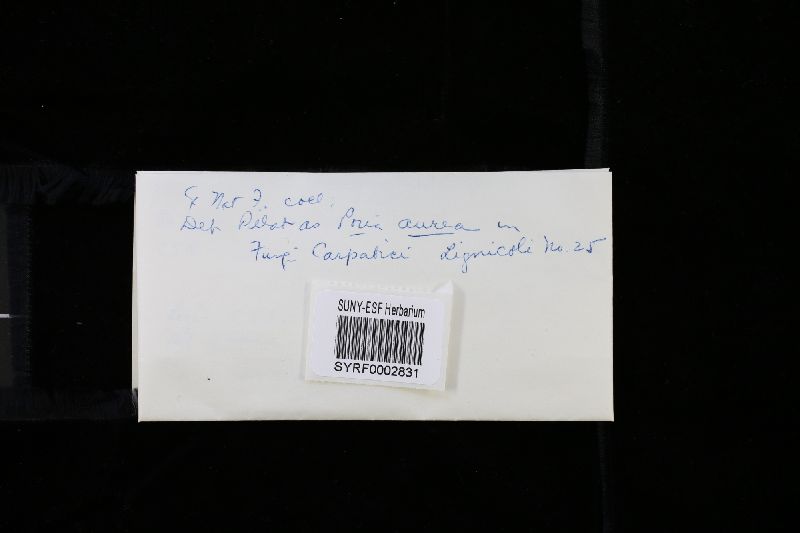 Nat F. coll.
Det Pilat as Poria aurea in
Fungi Carpatici Lignicoli No. 25
SUNY-ESF Herbarium
SYRF0002831